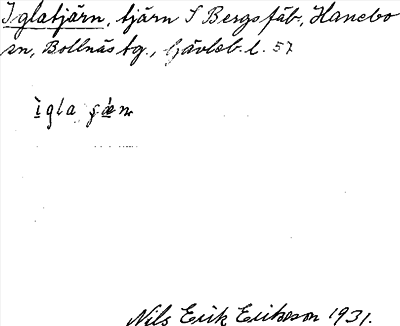 Iglatjärn, tjärn S Bergs fäb., Hanebo
sn, Bollnäs tg., Gävleb. l. 57
ìgla
Nils Erik Eriksson 1931.